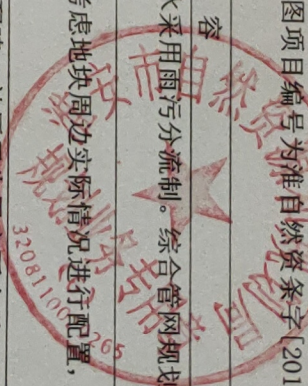 图项目编号为淮自然资条字[201
容
水采用雨污分流制。综合管网规划
考虑地块周边实际情况进行配置，
淮安市自然资源和规划局
规划业务专用章